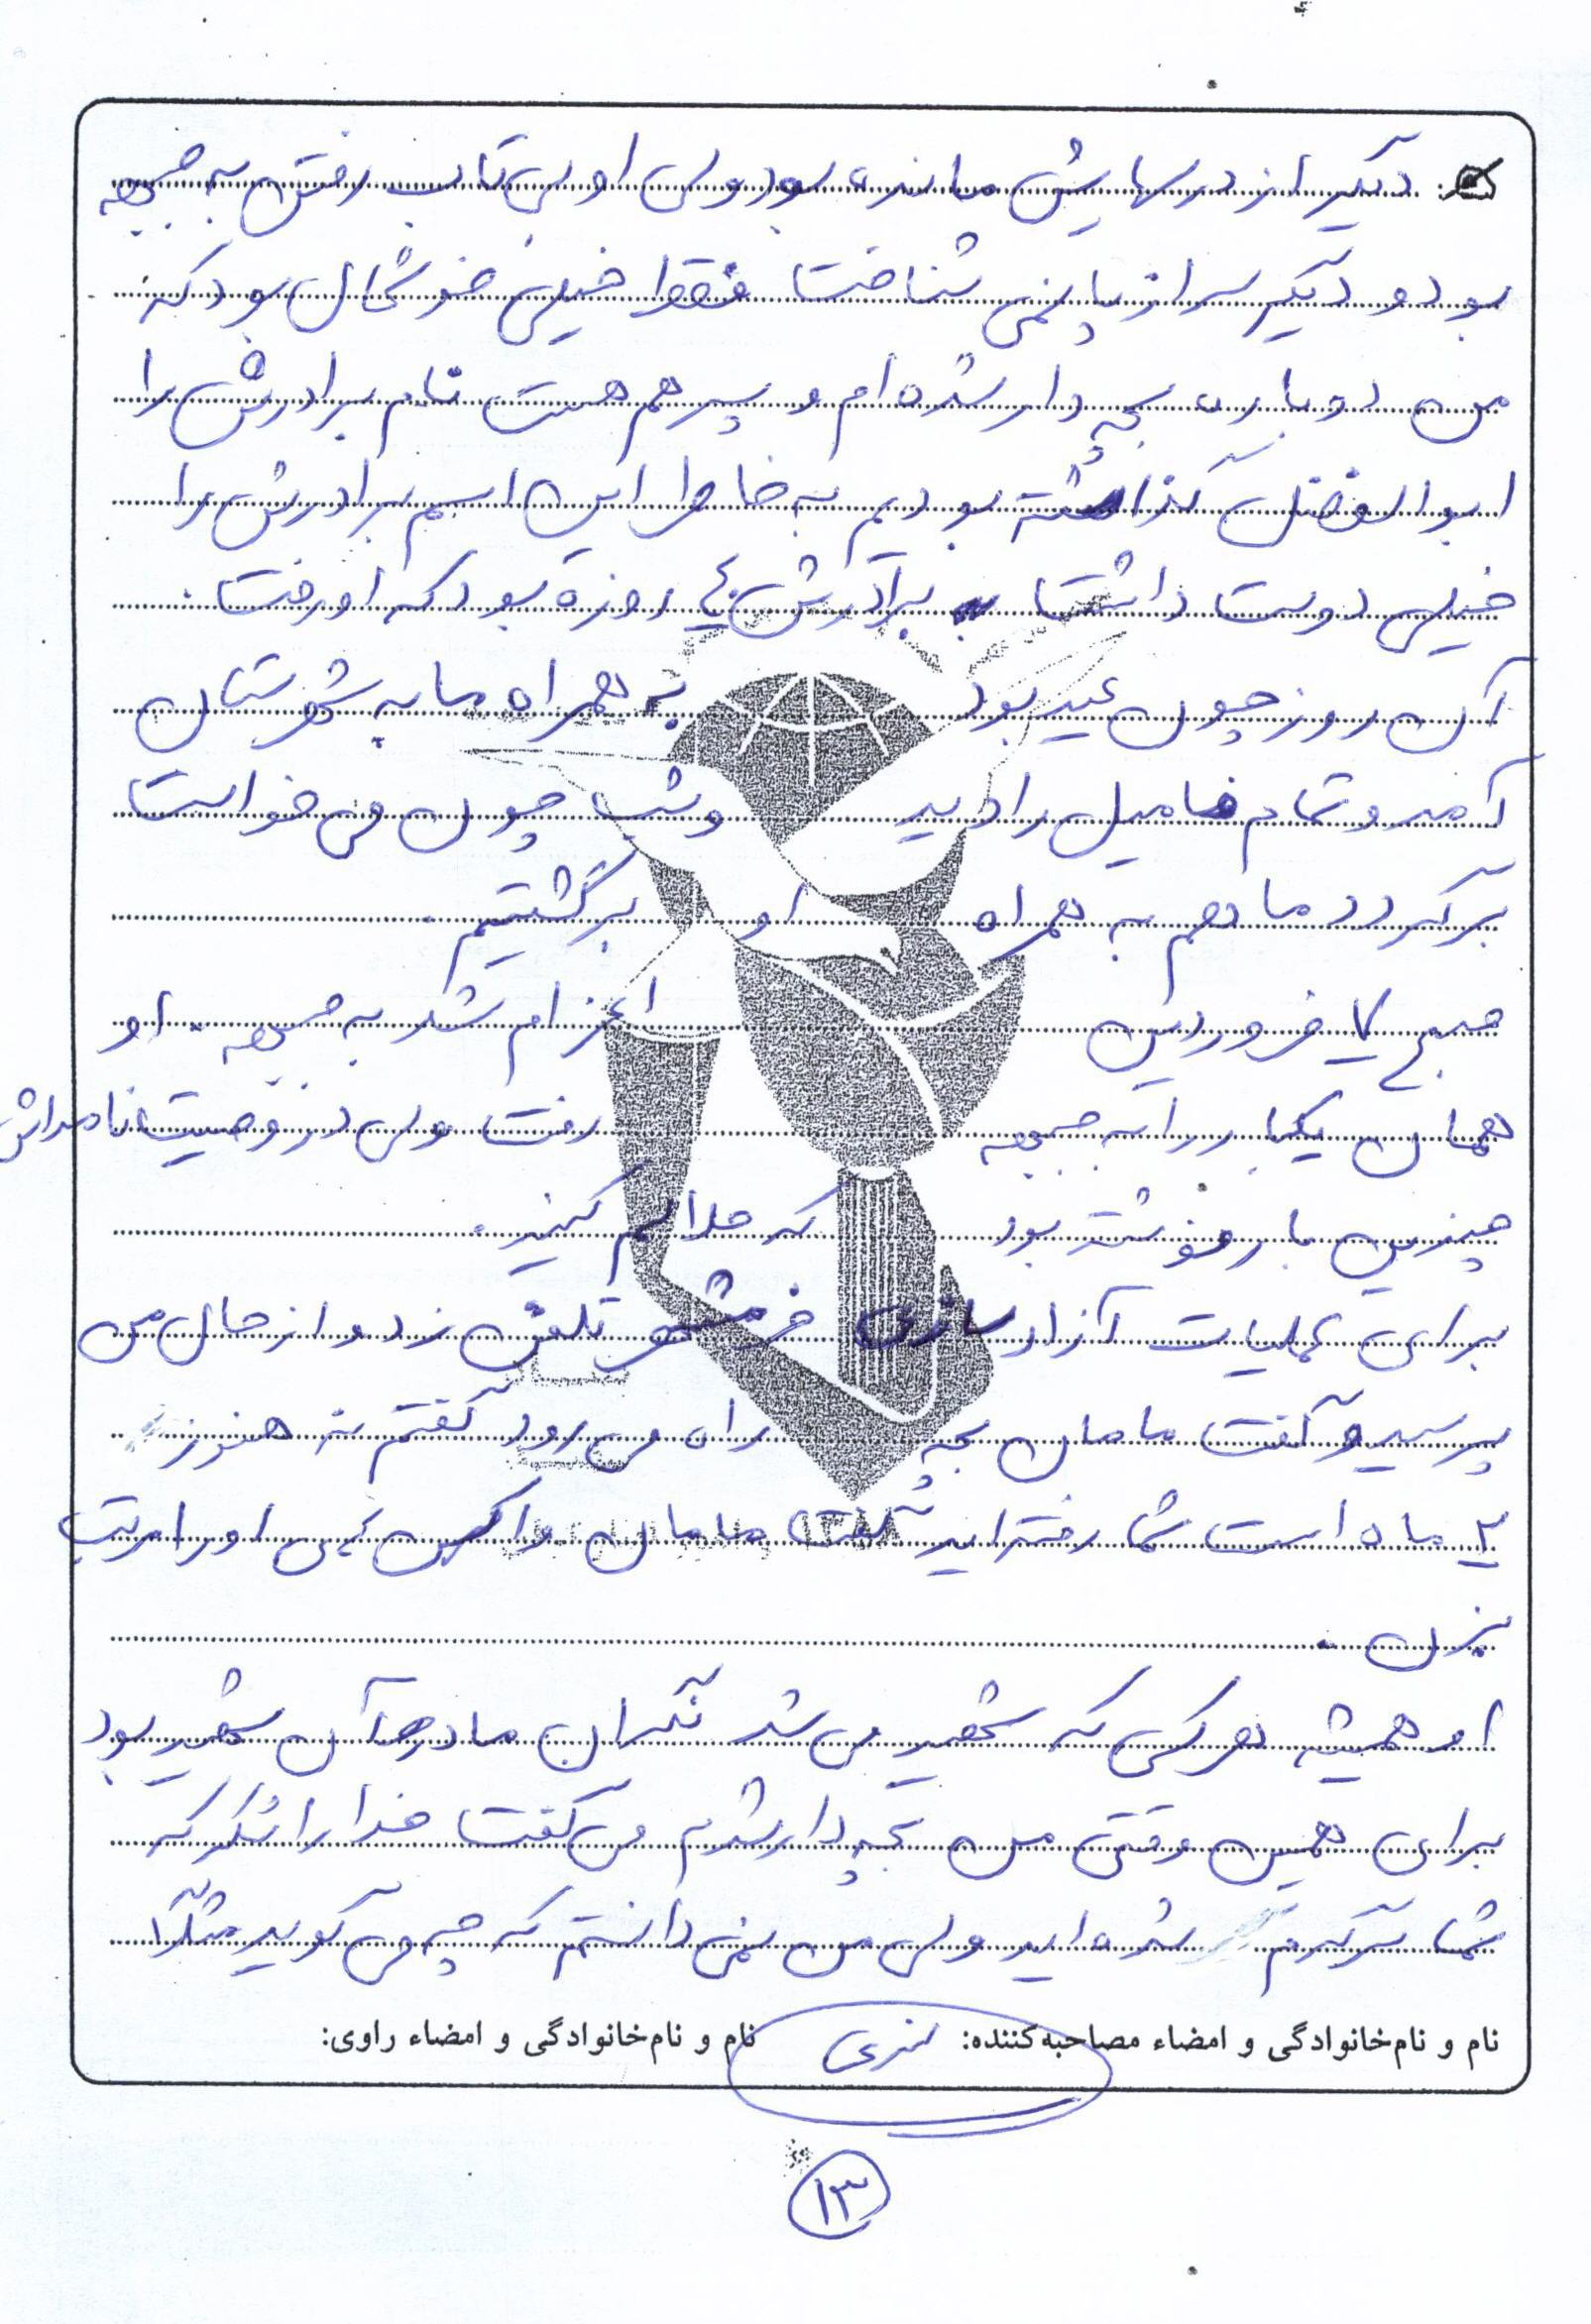 دیگر از درسهایش مانده بود ولی او بی تاب رفتن به جبهه
بود و دیگر سر از پا نمی شناخت فقط خیلی خوشحال بود که
من دوباره بچه دار شده ام و پسر هم هست نام برادرش را
ابوالفضل گذاشته بودیم به خاطر این اسم برادرش را
خیلی دوست داشت برادرش ٤ روزه بود که او رفت.
آن روز چون عید بود به همراه ما به شهرستان
آمد و تمام فامیل را دید و شب چون می خواست
برگردد ما هم به همراه او برگشتیم.
صبح ٧ فروردین اعزام شد به جبهه. او
همان یکبار را به جبهه رفت ولی در وصیت نامه اش
چندین بار نوشته بود که حلالم کنید.
برای عملیات آزاد سازی خرمشهر تلفن زد و از حال من
پرسید و گفت مامان بچه راه می رود گفتم نه هنوز
٢ ماه است شما رفته اید گفت مامان واکسن های او را مرتب
بزن.
او همیشه هر کسی که شهید می شد نگران مادر آن شهید بود
برای همین وقتی من بچه دار شدم می گفت خدا را شکر که
شما سرگرم شده اید ولی من نمی دانستم که چه می گوید مثلاً
نام و نام‌خانوادگی و امضاء مصاحبه‌کننده: نام و نام‌خانوادگی و امضاء راوی:
١٣